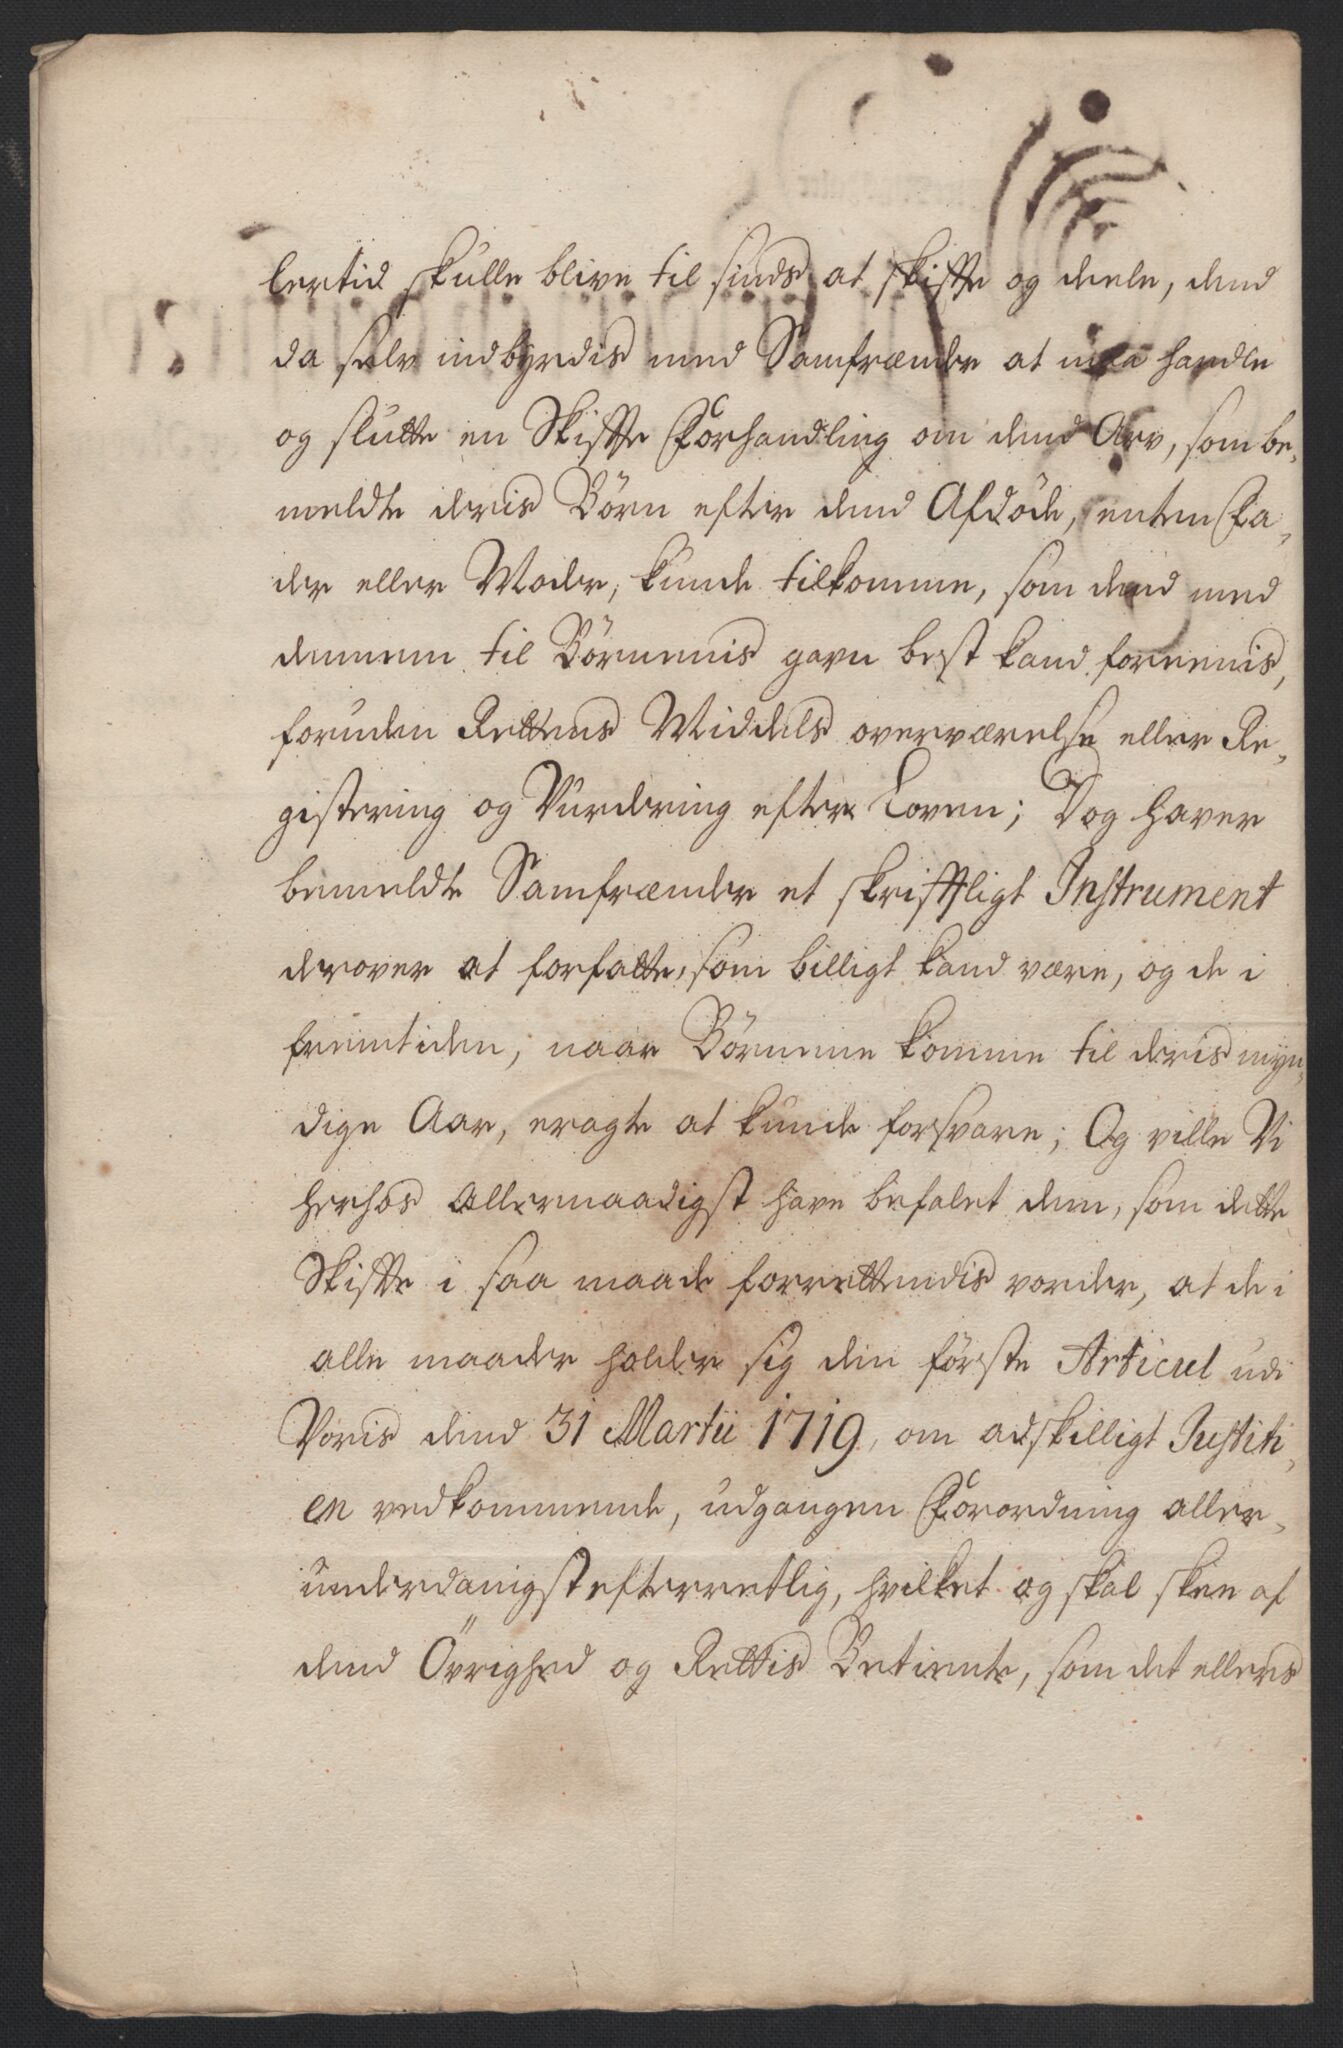 lertid skulle blive til sinds at skiffte og deele, dend
da selv indbyrdis med Samfrænder at maa handle
og slutte en Skiffte Forhandling om dend Arv, som be,
meldte deris Börn efter dend Afdöde, enten Fa,
der eller Moder, kunde tilkomme, som dend med
dennem til Börnenis gavn best kand foreenis,
foruden Rettens Middels overværelse eller Re,
gistering og Vurdering efter Loven; Dog haver
bemeldte Samfrænder et skrifftligt Instrument
derover at forfatte, som billigt kand være, og de i
fremtiden, naar Börnene komme til deris myn,
dige Aar, eragte at kunde forsvare; Og ville Vi
herhos Allernaadigst have befalet dem, som dette
Skiffte i saa maade forrettendis vorder, at de i
alle maader holder sig den förste Articul udi
Voris dend 31 Martii 1719, om adskilligt Justiti,
en vedkommende, udgangen Forordning aller,
underdanigst efterretlig, hvilket og skal skee af
dend Övrighed og Rettis Betiente, som det ellers